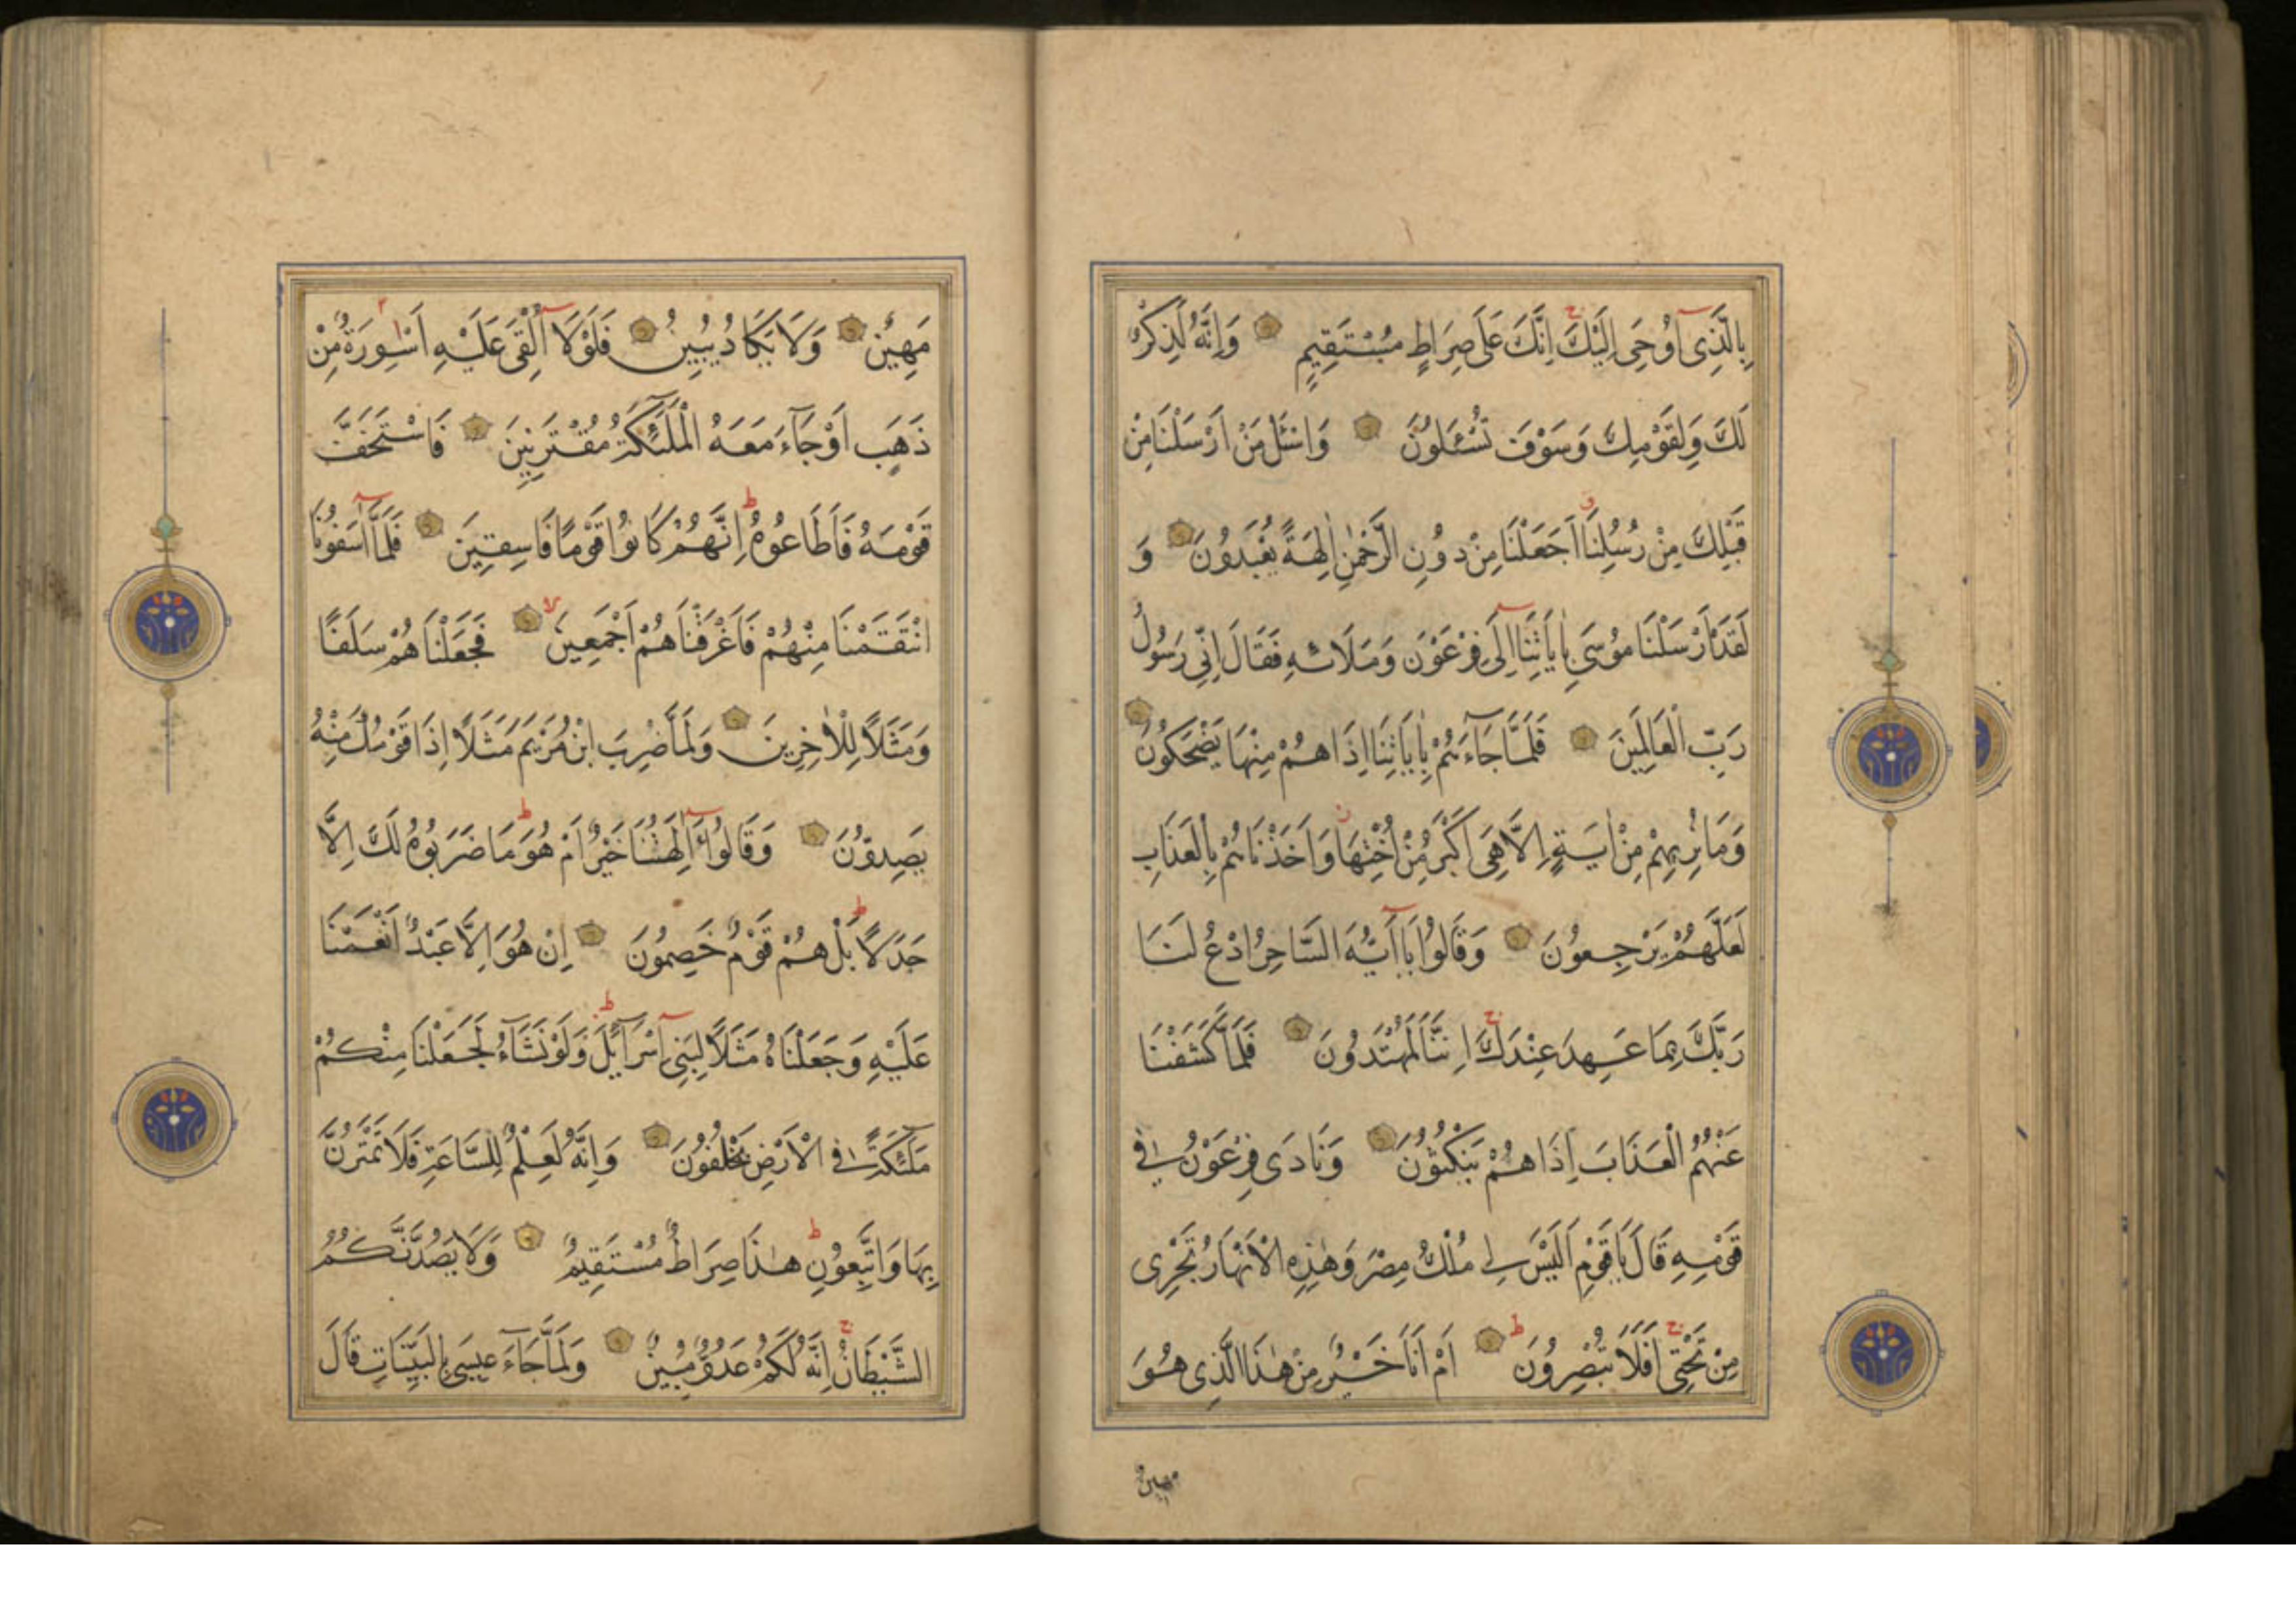 بِالَّذِى اُوحِىَ اِلَيْكَ اِنَّكَ عَلَى صِرَاطٍ مُسْتَقِيمٍ وَاِنَّهُ لَذِكْرٌ
لَكَ وَلِقَوْمِكَ وَسَوْفَ تُسْئَلُونَ وَاسْئَلْ مَنْ اَرْسَلْنَا مِنْ
قَبْلِكَ مِنْ رُسُلِنَا اَجَعَلْنَا مِنْ دُونِ الرَّحْمٰنِ اٰلِهَةً يُعْبَدُونَ وَ
لَقَدْ اَرْسَلْنَا مُوسَى بِاٰيَاتِنَا اِلَى فِرْعَوْنَ وَمَلَائِهِ فَقَالَ اِنِّى رَسُولُ
رَبِّ الْعَالَمِينَ فَلَمَّا جَآءَهُمْ بِاٰيَاتِنَا اِذَا هُمْ مِنْهَا يَضْحَكُونَ
وَمَا نُرِيهِمْ مِنْ اٰيَةٍ اِلَّا هِىَ اَكْبَرُ مِنْ اُخْتِهَا وَاَخَذْنَاهُمْ بِالْعَذَابِ
لَعَلَّهُمْ يَرْجِعُونَ وَقَالُوا يَا اَيُّهَ السَّاحِرُ ادْعُ لَنَا
رَبَّكَ بِمَا عَهِدَ عِنْدَكَ اِنَّنَا لَمُهْتَدُونَ فَلَمَّا كَشَفْنَا
عَنْهُمُ الْعَذَابَ اِذَا هُمْ يَنْكُثُونَ وَنَادَى فِرْعَوْنُ فِى
قَوْمِهِ قَالَ يَا قَوْمِ اَلَيْسَ لِى مُلْكُ مِصْرَ وَهٰذِهِ الْاَنْهَارُ تَجْرِى
مِنْ تَحْتِى اَفَلَا تُبْصِرُونَ اَمْ اَنَا خَيْرٌ مِنْ هٰذَا الَّذِى هُوَ
مهين
مَهِينٌ وَلَا يَكَادُ يُبِينُ فَلَوْلَا اُلْقِىَ عَلَيْهِ اَسْوِرَةٌ مِنْ
ذَهَبٍ اَوْ جَآءَ مَعَهُ الْمَلٰٓئِكَةُ مُقْتَرِنِينَ فَاسْتَخَفَّ
قَوْمَهُ فَاَطَاعُوهُ اِنَّهُمْ كَانُوا قَوْمًا فَاسِقِينَ فَلَمَّا اٰسَفُونَا
انْتَقَمْنَا مِنْهُمْ فَاَغْرَقْنَاهُمْ اَجْمَعِينَ فَجَعَلْنَاهُمْ سَلَفًا
وَمَثَلًا لِلْاٰخِرِينَ وَلَمَّا ضُرِبَ ابْنُ مَرْيَمَ مَثَلًا اِذَا قَوْمُكَ مِنْهُ
يَصِدُّونَ وَقَالُوا ءَاٰلِهَتُنَا خَيْرٌ اَمْ هُوَ مَا ضَرَبُوهُ لَكَ اِلَّا
جَدَلًا بَلْ هُمْ قَوْمٌ خَصِمُونَ اِنْ هُوَ اِلَّا عَبْدٌ اَنْعَمْنَا
عَلَيْهِ وَجَعَلْنَاهُ مَثَلًا لِبَنِى اِسْرَآئِلَ وَلَوْ نَشَآءُ لَجَعَلْنَا مِنْكُمْ
مَلٰٓئِكَةً فِى الْاَرْضِ يَخْلُفُونَ وَاِنَّهُ لَعِلْمٌ لِلسَّاعَةِ فَلَا تَمْتَرُنَّ
بِهَا وَاتَّبِعُونِ هٰذَا صِرَاطٌ مُسْتَقِيمٌ وَلَا يَصُدَّنَّكُمُ
الشَّيْطَانُ اِنَّهُ لَكُمْ عَدُوٌّ مُبِينٌ وَلَمَّا جَآءَ عِيسَى بِالْبَيِّنَاتِ قَالَ